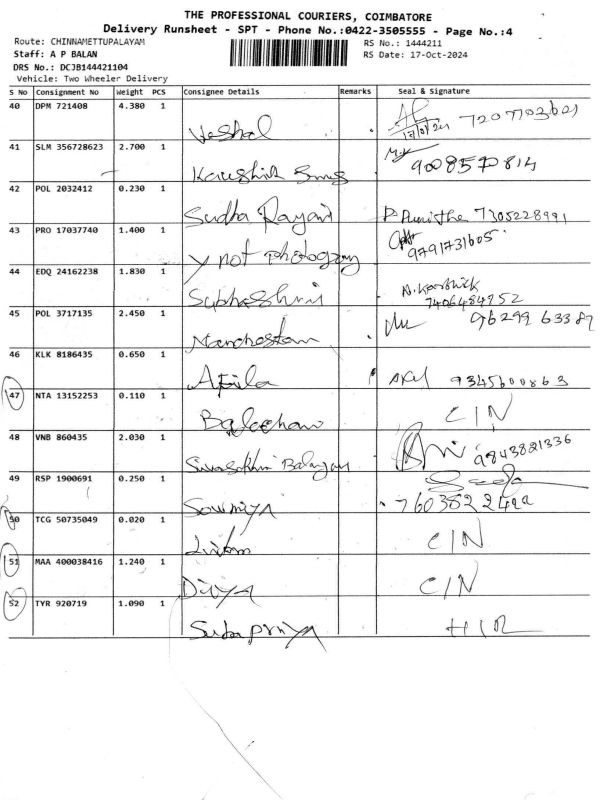 THE PROFESSIONAL COURIERS, COIMBATORE
Delivery Runsheet - SPT - Phone No.:0422-3505555 - Page No.:4
Route: CHINNAMETTUPALAYAM
Staff: A P BALAN
DRS No.: DCJB144421104
Vehicle: Two Wheeler Delivery
RS No.: 1444211
RS Date: 17-Oct-2024
S No Consignment No Weight PCS Consignee Details Remarks Seal & Signature
40 DPM 721408 4.380 1 7207703621
41 SLM 356728623 2.700 1 9008570814
42 POL 2032412 0.230 1 Sudha Rayani P. Punitha 7305228991
43 PRO 17037740 1.400 1 y not photograpy 9791731605
44 EDQ 24162238 1.830 1 Subhashini N. Karthick 7406484952
45 POL 3717135 2.450 1 96299 63389
46 KLK 8186435 0.650 1 9345600863
47 NTA 13152253 0.110 1 C/N
48 VNB 860435 2.030 1 9843821336
49 RSP 1900691 0.250 1 Sowmiya
50 TCG 50735049 0.020 1 C/N
51 MAA 400038416 1.240 1 Divya C/N
52 TYR 920719 1.090 1 Subapriya